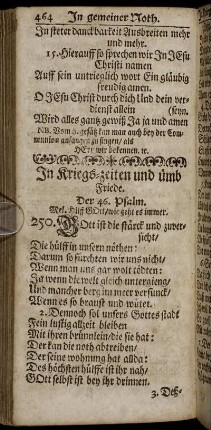 464 In gemeiner Noth.
In steter danckbarkeit Ausbreiten mehr
und mehr.
15. Hierauff so sprechen wir In JEsu
Christi namen
Auff sein untrieglich wort Ein gläubig
freudig amen.
O JEsu Christ durch dich Und dein ver-
dienst allein (seyn.
Wird alles gantz gewiß Ja ja und amen
NB. Vom gesätz kan man auch bey der Com-
munion anfangen zu singen, als
HErr wir bekennen. ꝛc.
In Kriegs-zeiten und ümb
Friede.
Der 46. Psalm.
Mel. Hilff GOtt, wie geht es immer.
250. GOtt ist die stärck und zuver-
sicht,
Die hülff in unsern nöthen:
Darum so fürchten wir uns nicht,
Wenn man uns gar wolt tödten:
Ja wenn die welt gleich untergieng,
Und mancher berg im meer versünck,
Wenn es so braust und wütet.
2. Dennoch sol unsers Gottes stadt
Fein lustig allzeit bleiben
Mit ihren brünnlein, die sie hat:
Der kan die noth abtreiben,
Der seine wohnung hat allda:
Des höchsten hülffe ist ihr nah,
GOtt selbst ist bey ihr drinnen.
3. Deß-